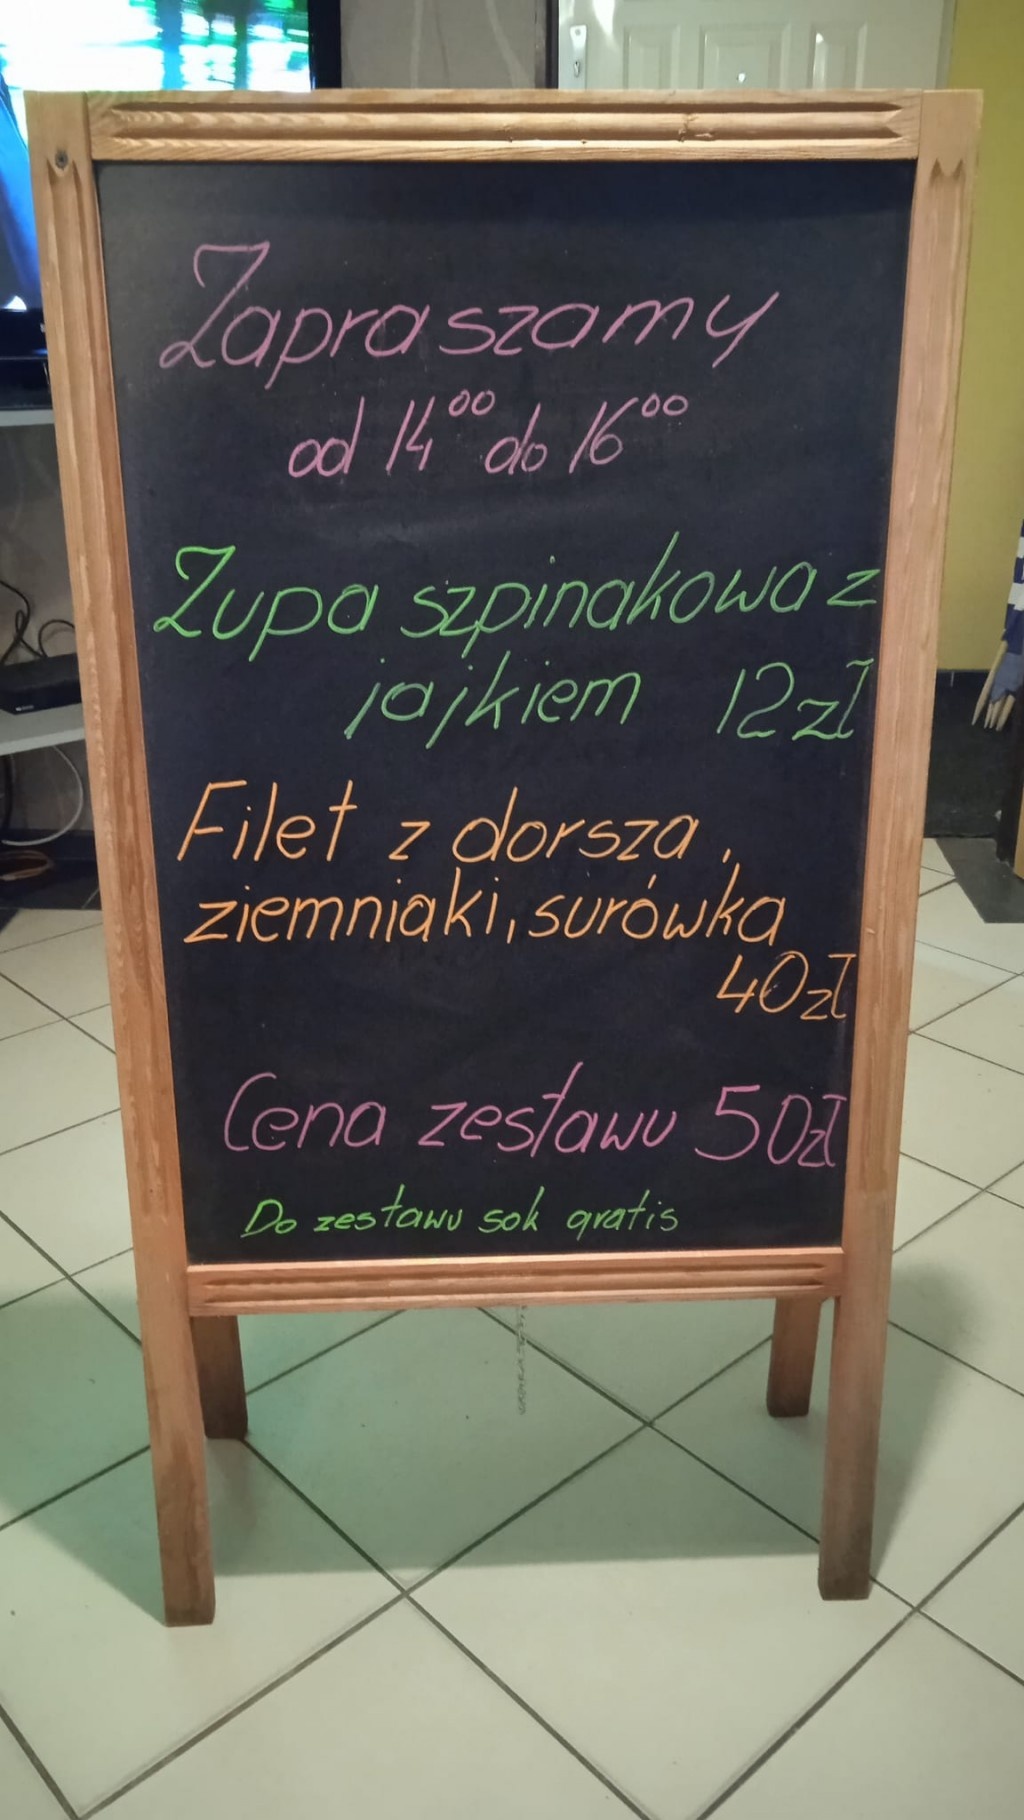 Zapraszamy
od 14⁰⁰ do 16⁰⁰
Zupa szpinakowa z
jajkiem 12zł
Filet z dorsza,
ziemniaki, surówka
40zł
Cena zestawu 50zł
Do zestawu sok gratis